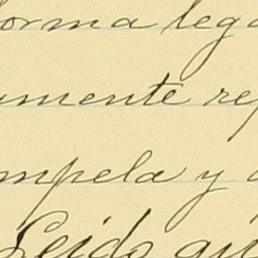 orma lega
amente rep
mpela y a
Leido que